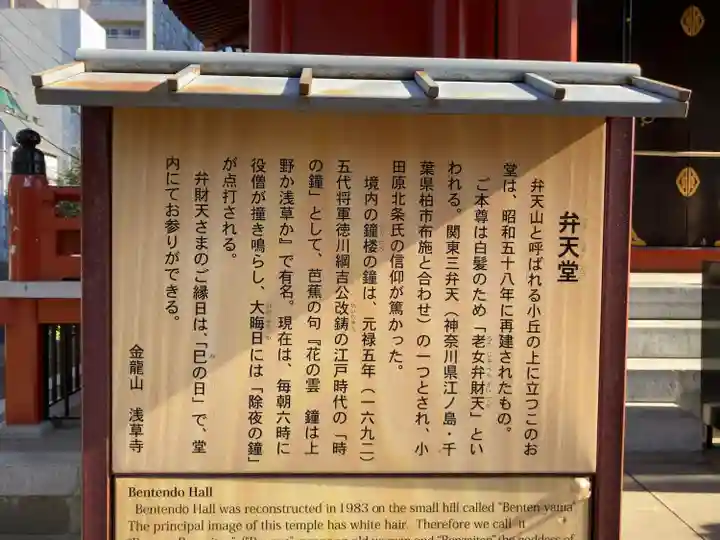 弁天堂
弁天山と呼ばれる小丘の上に立つこのお
堂は、昭和五十八年に再建されたもの。
ご本尊は白髪のため「老女弁財天」とい
われる。関東三弁天（神奈川県江ノ島・千
葉県柏市布施と合わせ）の一つとされ、小
田原北条氏の信仰が篤かった。
境内の鐘楼の鐘は、元禄五年（一六九二）
五代将軍徳川綱吉公改鋳の江戸時代の「時
の鐘」として、芭蕉の句『花の雲　鐘は上
野か浅草か』で有名。現在は、毎朝六時に
役僧が撞き鳴らし、大晦日には「除夜の鐘」
が点打される。
弁財天さまのご縁日は、「巳の日」で、堂
内にてお参りができる。
金龍山　浅草寺
Bentendo Hall
Bentendo Hall was reconstructed in 1983 on the small hill called "Benten yama"
The principal image of this temple has white hair. Therefore we call it